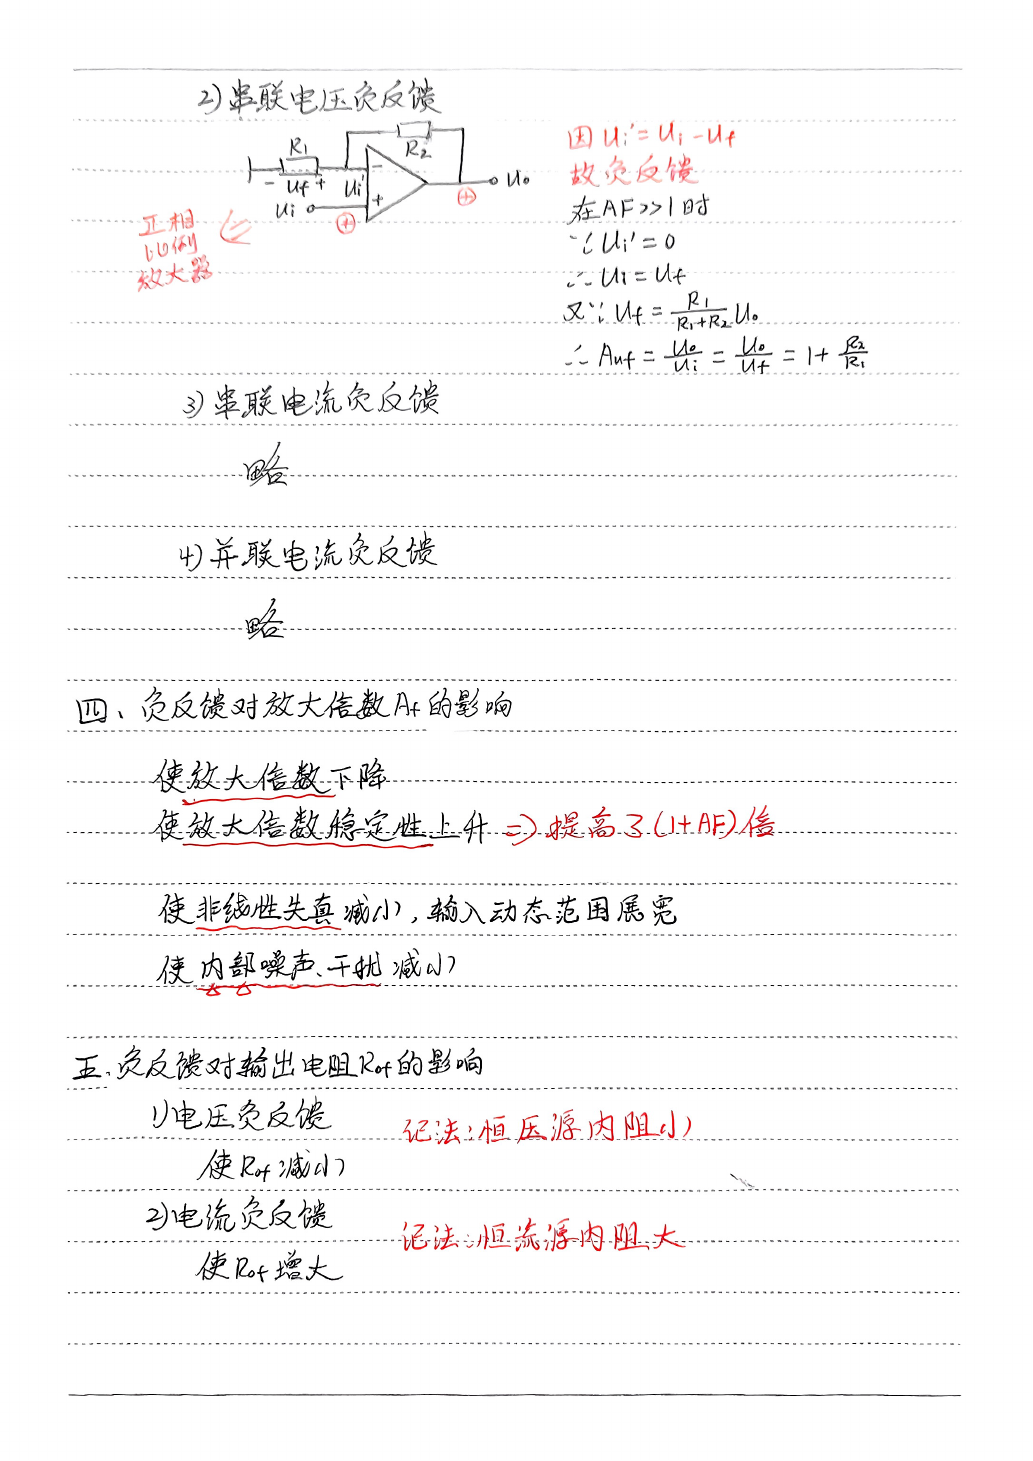 2)串联电压负反馈
R₁
R₂
- Uf +
Ui'
-
+
Ui
Uo
⊕
⊕
正相
比例
放大器
⇐
因 Ui' = Ui - Uf
故负反馈
在AF>>1时
∵ Ui' = 0
∴ Ui = Uf
又∵ Uf = R₁/(R₁+R₂) Uo
∴ Auf = Uo/Ui = Uo/Uf = 1 + R₂/R₁
3)串联电流负反馈
略
4)并联电流负反馈
略
四、负反馈对放大倍数Af的影响
使放大倍数下降
使放大倍数稳定性上升 ⇒ 提高了(1+AF)倍
使非线性失真减小,输入动态范围展宽
使内部噪声、干扰减小
五、负反馈对输出电阻Rof的影响
1)电压负反馈 记法:恒压源内阻小
使Rof减小
2)电流负反馈 记法:恒流源内阻大
使Rof增大